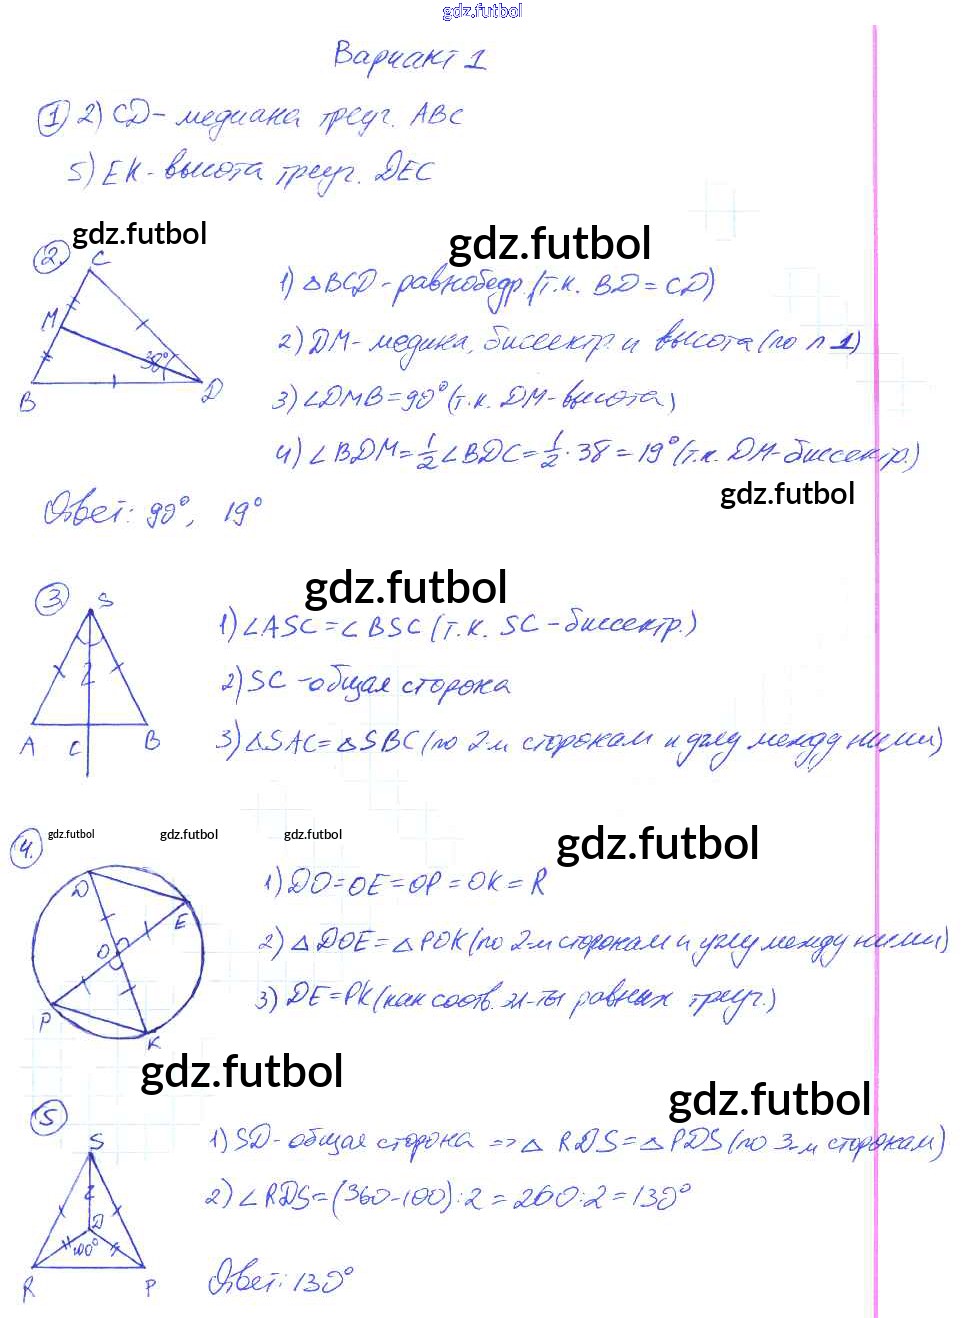 gdz.futbol
Вариант 1
1 2) CD - медиана треуг. ABC
5) EK - высота треуг. DEC
gdz.futbol
gdz.futbol
2. C
M
38°
B
D
1) △BCD - равнобедр. (т.к. BD = CD)
2) DM - медина, биссектр. и высота (по п 1)
3) ∠DMB = 90° (т.к. DM - высота)
4) ∠BDM = 1/2 ∠BDC = 1/2 · 38 = 19° (т.к. DM - биссектр.)
gdz.futbol
Ответ: 90°, 19°
gdz.futbol
3. S
A C B
1) ∠ASC = ∠BSC (т.к. SC - биссектр.)
2) SC - общая сторона
3) △SAC = △SBC (по 2-м сторонам и углу между ними)
gdz.futbol gdz.futbol gdz.futbol
gdz.futbol
4. D
E
O
P
K
1) DO = OE = OP = OK = R
2) △DOE = △POK (по 2-м сторонам и углу между ними)
3) DE = PK (как соотв. эл-ты равных треуг.)
gdz.futbol
gdz.futbol
5 S
D
100°
R P
1) SD - общая сторона => △ RDS = △PDS (по 3-м сторонам)
2) ∠RDS = (360-100) : 2 = 260 : 2 = 130°
Ответ: 130°